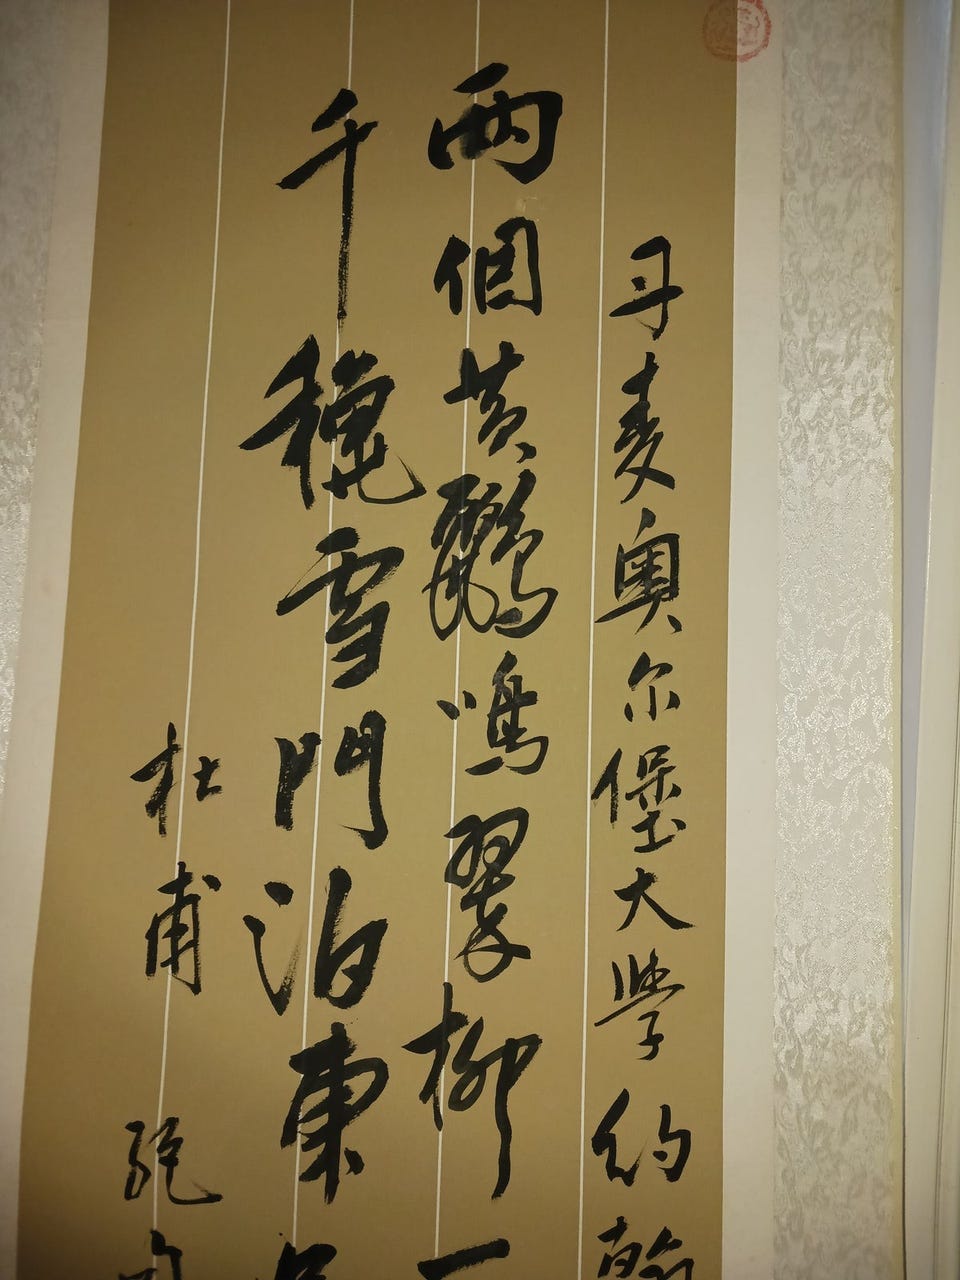 丹麦奥尔堡大學约翰
兩個黃鸝鳴翠柳一
千穐雪門泊東
杜甫絕